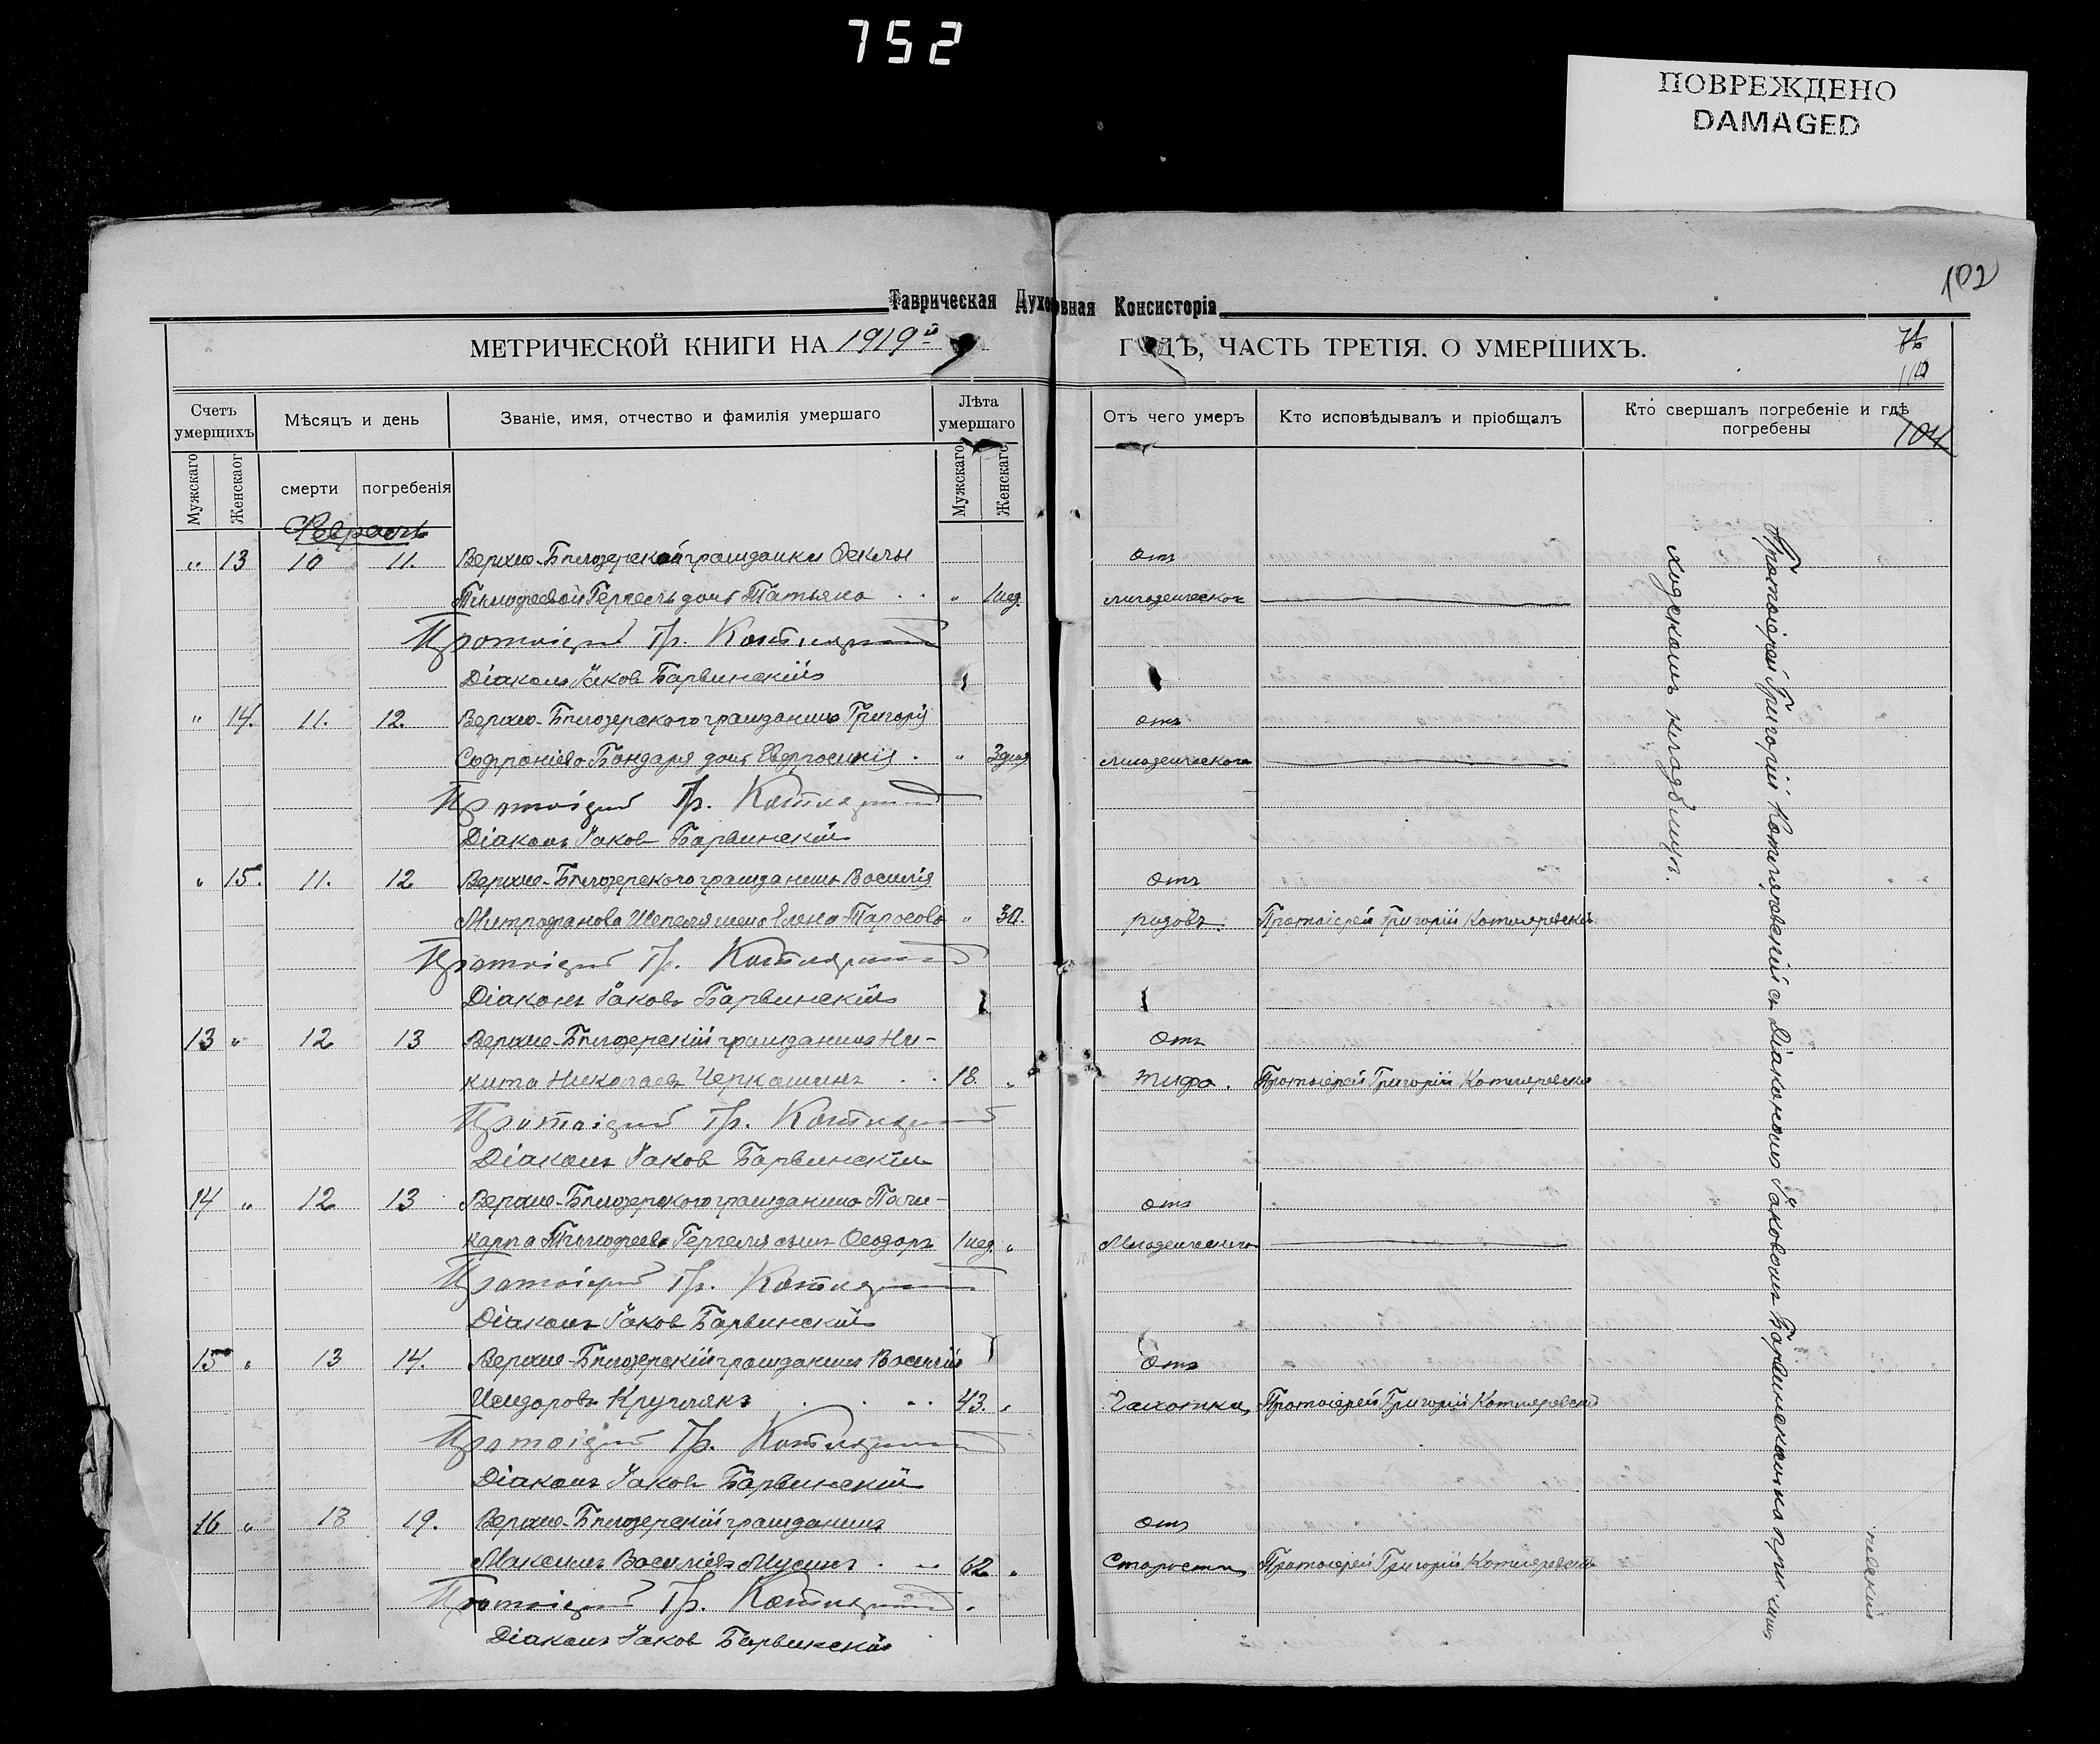 752
ПОВРЕЖДЕНО
DAMAGED
102
Таврическая Духовная Консисторія
МЕТРИЧЕСКОЙ КНИГИ НА 1919й ГОДЪ, ЧАСТЬ ТРЕТІЯ. О УМЕРШИХЪ.
104
Счетъ умершихъ
Мѣсяцъ и день
Званіе, имя, отчество и фамилія умершаго
Лѣта умершаго
Отъ чего умеръ
Кто исповѣдывалъ и пріобщалъ
Кто свершалъ погребеніе и гдѣ погребены
Мужскаго
Женскаог
смерти
погребенія
Мужскаго
Женскаго
Февраль
" 13 10 11. Верхне-Бѣлозерской гражданки Феклы отъ
Тимофеевой Гергель дочь Татьяна " 1 нед. младенческой
Протоіерей Гр. Котляревскій
Діаконъ Іаковъ Барвинскій
" 14. 11. 12. Верхне-Бѣлозерского гражданина Григорія отъ
Софроніева Бондаря дочь Евфросинія " 3 дня младенческого
Протоіерей Гр. Котляревскій
Діаконъ Іаковъ Барвинскій
" 15. 11. 12 Верхне-Бѣлозерского гражданина Василія отъ
Митрофанова Шепеля жена Елена Тарасова " 30. родовъ. Протоіерей Григорій Котляревскій
Протоіерей Гр. Котляревскій
Діаконъ Іаковъ Барвинскій
13 " 12 13 Верхне-Бѣлозерскій гражданинъ Ни- отъ
кита Николаевъ Черкашинъ 18. " тифа. Протоіерей Григорій Котляревскій
Протоіерей Гр. Котляревскій
Діаконъ Іаковъ Барвинскій
14 " 12 13 Верхне-Бѣлозерского гражданина Поли- отъ
карпа Тимофеева Гергеля сынъ Феодоръ 1 нед. " Младенческого
Протоіерей Гр. Котляревскій
Діаконъ Іаковъ Барвинскій
15 " 13 14. Верхне-Бѣлозерскій гражданинъ Василій отъ
Исидоровъ Кругликъ 43. " Чахотки Протоіерей Григорій Котляревскій
Протоіерей Гр. Котляревскій
Діаконъ Іаковъ Барвинскій
16 " 18 19. Верхне-Бѣлозерскій гражданинъ отъ
Максимъ Василіевъ Мусинъ 62 " Старости Протоіерей Григорій Котляревскій
Протоіерей Гр. Котляревскій
Діаконъ Іаковъ Барвинскій
Протоіерей Григорій Котляревскій съ Діакономъ Іаковомъ Барвинскимъ на
ходскомъ кладбищѣ.